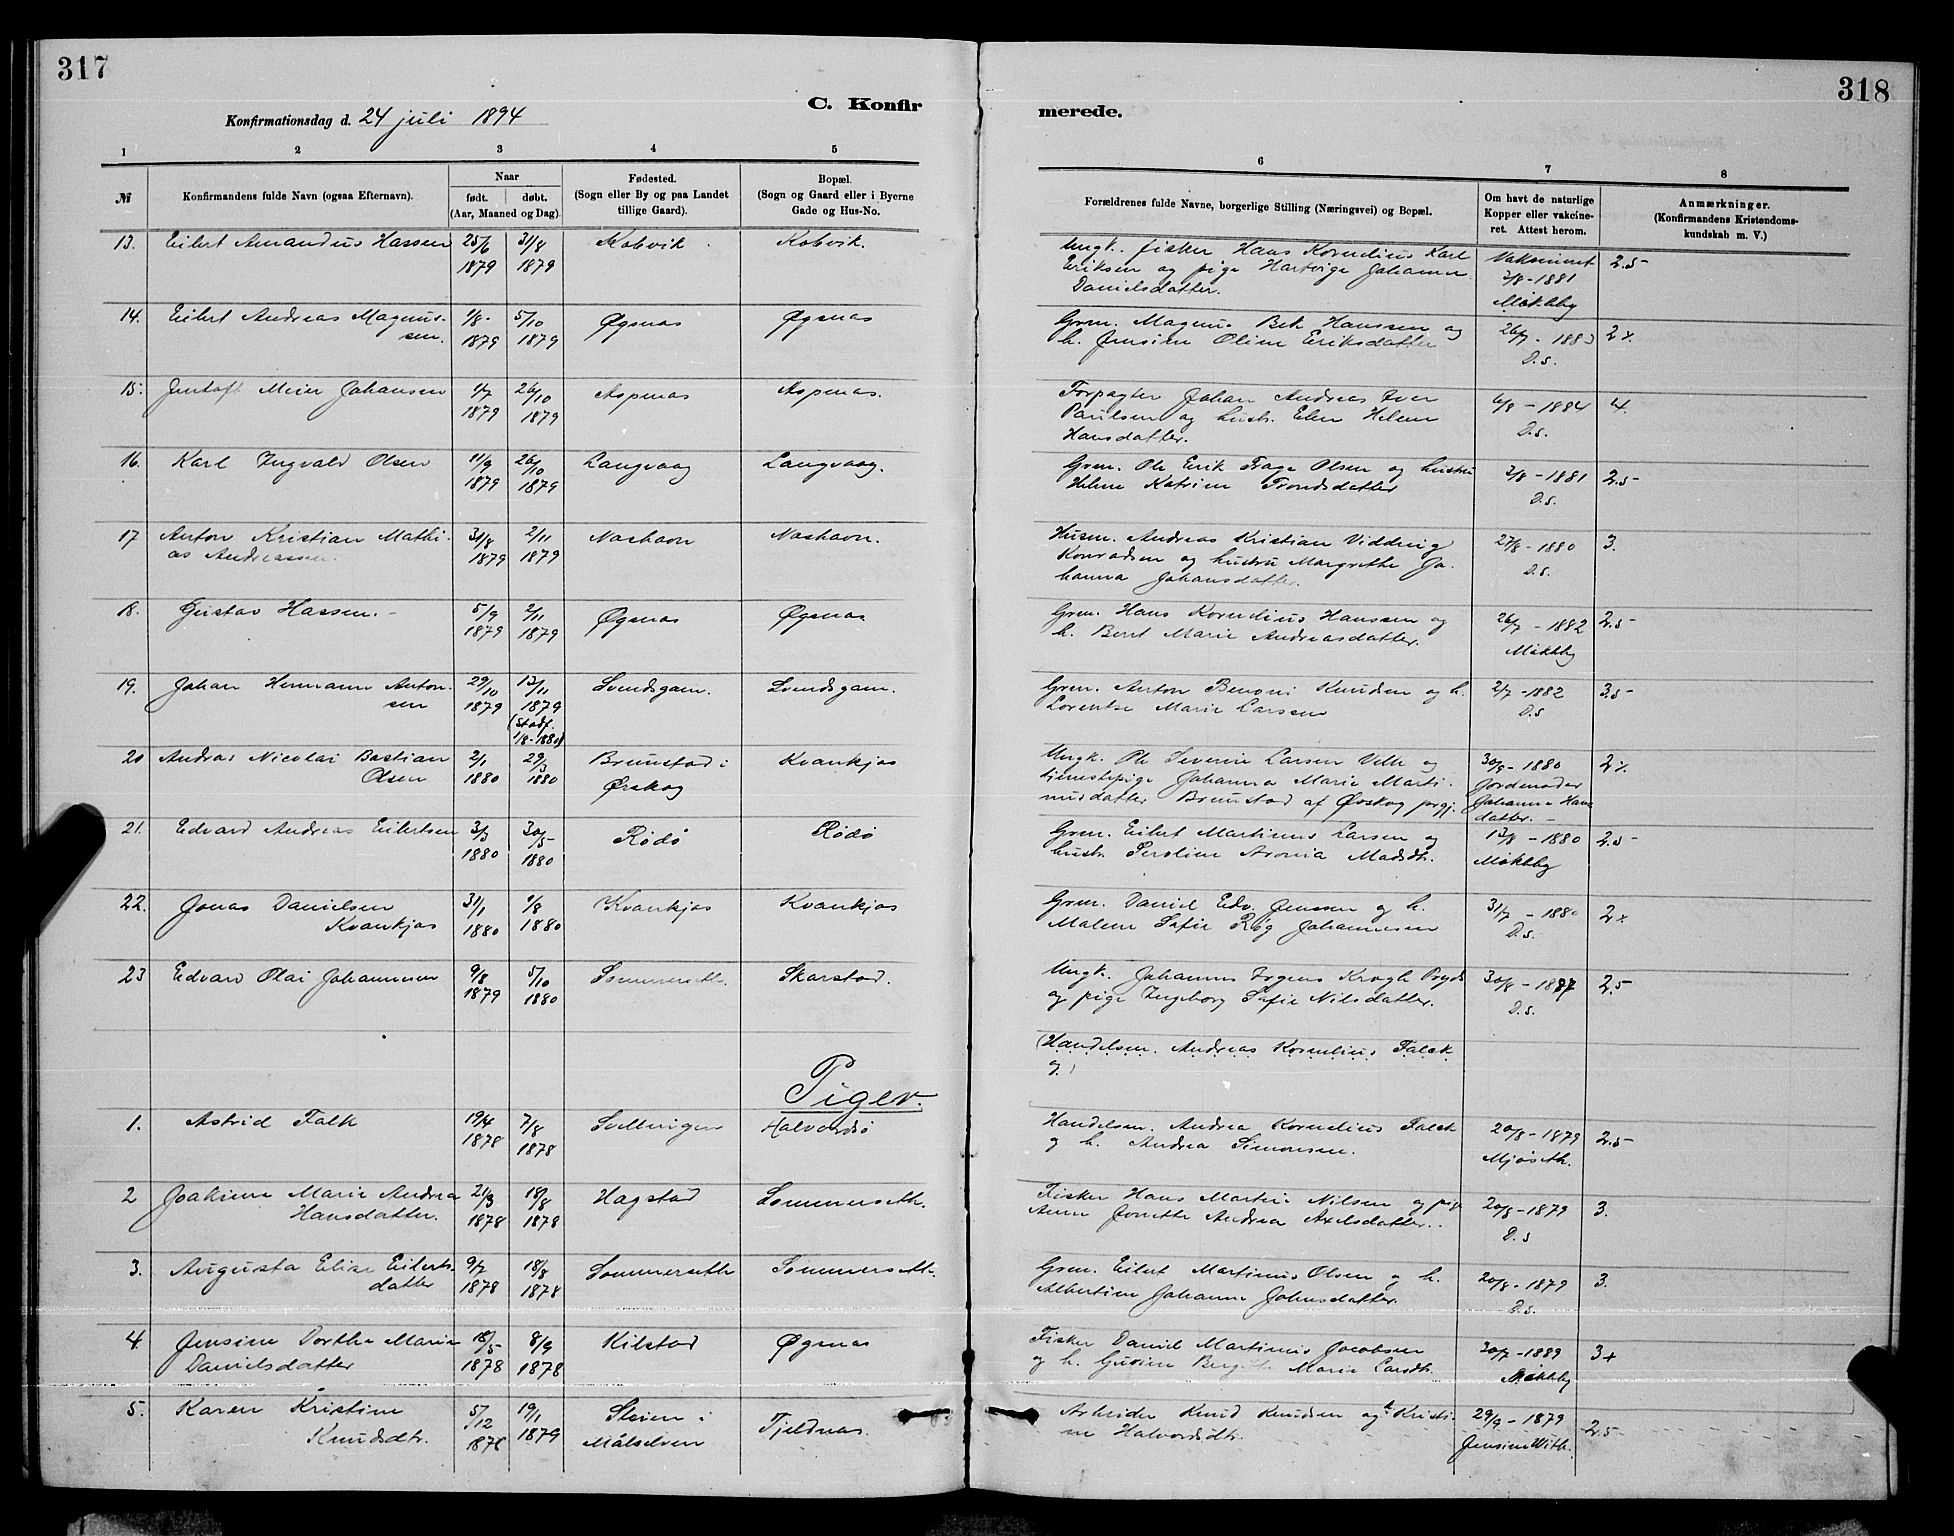 317
Konfirmationsdag d. 24 juli 1894
C. Konfir
1 2 3 4 5
№ Konfirmandens fulde Navn (ogsaa Efternavn). Naar født. døbt. (Aar, Maaned og Dag). Fødested. (Sogn eller By og paa Landet tillige Gaard). Bopæl. (Sogn og Gaard eller i Byerne Gade og Hus-No.
13. Eilert Amandus Hassen 25/6 31/8 Kobvik Kobvik.
1879 1879
14. Eilert Andreas Magnus- 1/8- 5/10 Øgsnæs Øgsnæs
sen. 1879 1879
15. Jentoft Meier Johansen 1/7 26/10 Aspenæs Aspenæs.
1879 1879
16. Karl Ingvald Olsen 11/9 26/10 Langvaag Langvaag.
1879 1879
17 Anton Kristian Mathi- 31/8 2/11 Nashavn Nashavn.
as Andreassen. 1879 1879
18. Gustav Hassen. - 5/9 2/11 Øgsnæs Øgsnæs
1879 1879
19. Johan Hermann Anton- 29/10 13/11 Svendsgam. Svendsgam.
sen 1879 1879
(Stadf.
1/8-1880)
20 Andreas Nicolai Bastian 2/1 29/3 Brunstad i Kvankjos
Olsen 1880 1880 Ørskog
21. Edvard Andreas Eilertsen 3/3 30/5- Rødø Rødø
1880 1880
22. Jonas Danielsen 31/1 1/8 Kvankjos Kvankjos
Kvankjos 1880 1880
23 Edvard Olai Johannesen 9/8 5/10 Sommerseth. Skarstad.
1879 1880
Piger.
1. Astrid Falk 19/4 7/8 Svellingen Halvordsø
1878 1878
2 Joakime Marie Andrea 21/3 18/8 Hagstad Sommerseth.
Hansdatter. 1878 1878
3. Augusta Elise Eilerts- 9/7 18/8 Sommerseth Sommerseth.
datter 1878 1878
4. Jensine Dorthea Marie 18/5- 8/9 Kilstad Øgsnæs
Danielsdatter 1878 1878
5. Karen Kristine 5/12 19/1 i Tjeldnæs.
Knudsdtr. 1878 1879 Målselven
318
merede.
6 7 8
Forældrenes fulde Navne, borgerlige Stilling (Næringsvei) og Bopæl. Om havt de naturlige Kopper eller vakcine- ret. Attest herom. Anmærkninger. (Konfirmandens Kristendoms- kundskab m. V.)
Ungk. fisker Hans Kornelius Karl Vaksineret 2.5-
Eriksen og pige Hartvige Johanna 2/8-1881
Danielsdatter. Møkleby
Grm. Magnus Bek Hanssen og 26/7 - 1883 2+
h. Jensine Oline Eriksdatter D.s.
Forpagter Johan Andreas Iver 6/8 - 1884 4.
Paulsen og hustr. Elen Helene D.s.
Hansdatter.
Grm. Ole Erik Olsen og hustru 2/8 - 1881 2.5-
Helene Katrine Trondsdatter D.s.
Husm. Andreas Kristian Vidding 27/8 - 1880 3.
Konradsen og hustru Margrethe Jo- D.s.
hanna Johansdatter.
Grm. Hans Kornelius Hanssen og 26/7 - 1882 2.5-
h. Berit Marie Andreasdatter. Møkleby
Grm. Anton Benoni Knudsen og h. 2/7 -1882 3.5-
Lorentse Marie Larssen D.s
Ungk. Ole Severin Larsen Velle og 30/9 - 1880 2%
tjenestepige Johanna Marie Marti- Jordemoder
nusdatter Brunstad af Ørskog prgj. Johanna Hans
datter. -
Grm. Eilert Martinus Larsen og 13/8 - 1880 2.5-
hustr. Seroline Aronia Madsdtr. Møkleby
Grm. Daniel Edv. Jenssen og h. 31/7 - 1880 2+
Malene Sofie Røg Johannesen D.s.
Ungk. Johannes Irgens Krogh Pryds 30/8 - 1887 2.5
og pige Ingeborg Sofie Nilsdatter. D.s.
(Handelsm. Andreas Kornelius Falck
og)
Handelsm. Andrea Kornelius Falck 20/8-1879 2.5-
og h. Andrea Simonsen. Mjøseth.
Fisker Hans Martin Nilsen og pige 20/8-1879 3.
Anne Jonette Andrea Axelsdatter. D.s
Grm. Eilert Martinus Olsen og h. 20/8-1879 3.
Albertine Johanna Johnsdatter. D.s.
Fisker Daniel Martinus Jacobsen 30/7-1889 3+
og h. Gurine Bergitte Marie Larsdtr. Møkleby
Arbeider Knud Knudsen og h. Kristi- 29/9 - 1879 2.5-
ne Halvordsdtr. Jensine With.